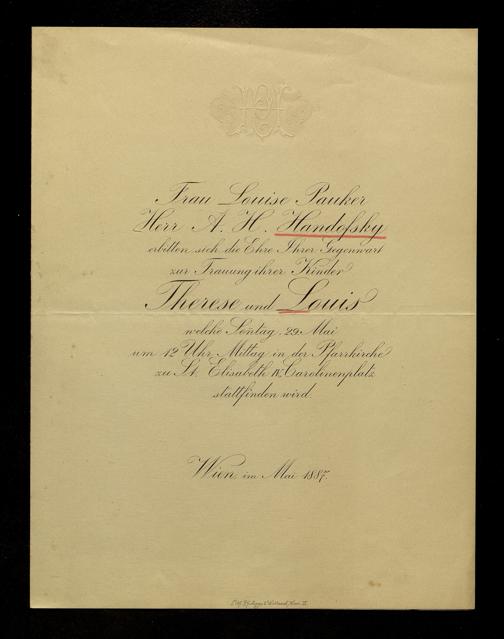 Frau Louise Pauker
Herr A. H. Handofsky
erbitten sich die Ehre Ihrer Gegenwart
zur Trauung ihrer Kinder
Therese und Louis
welche Sontag, 29. Mai
um 12 Uhr Mittag in der Pfarrkirche
zu St. Elisabeth IV. Carolinenplatz
stattfinden wird.
Wien, im Mai 1887.